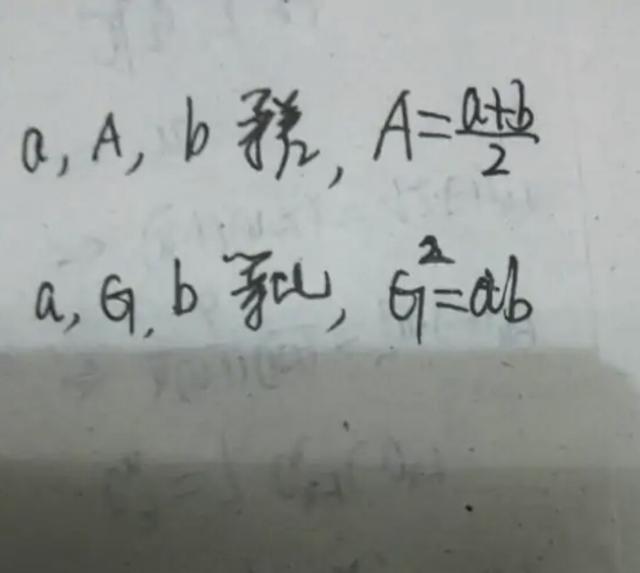 a, A, b 等差, A=\frac{a+b}{2}
a, G, b 等比, G^2=ab